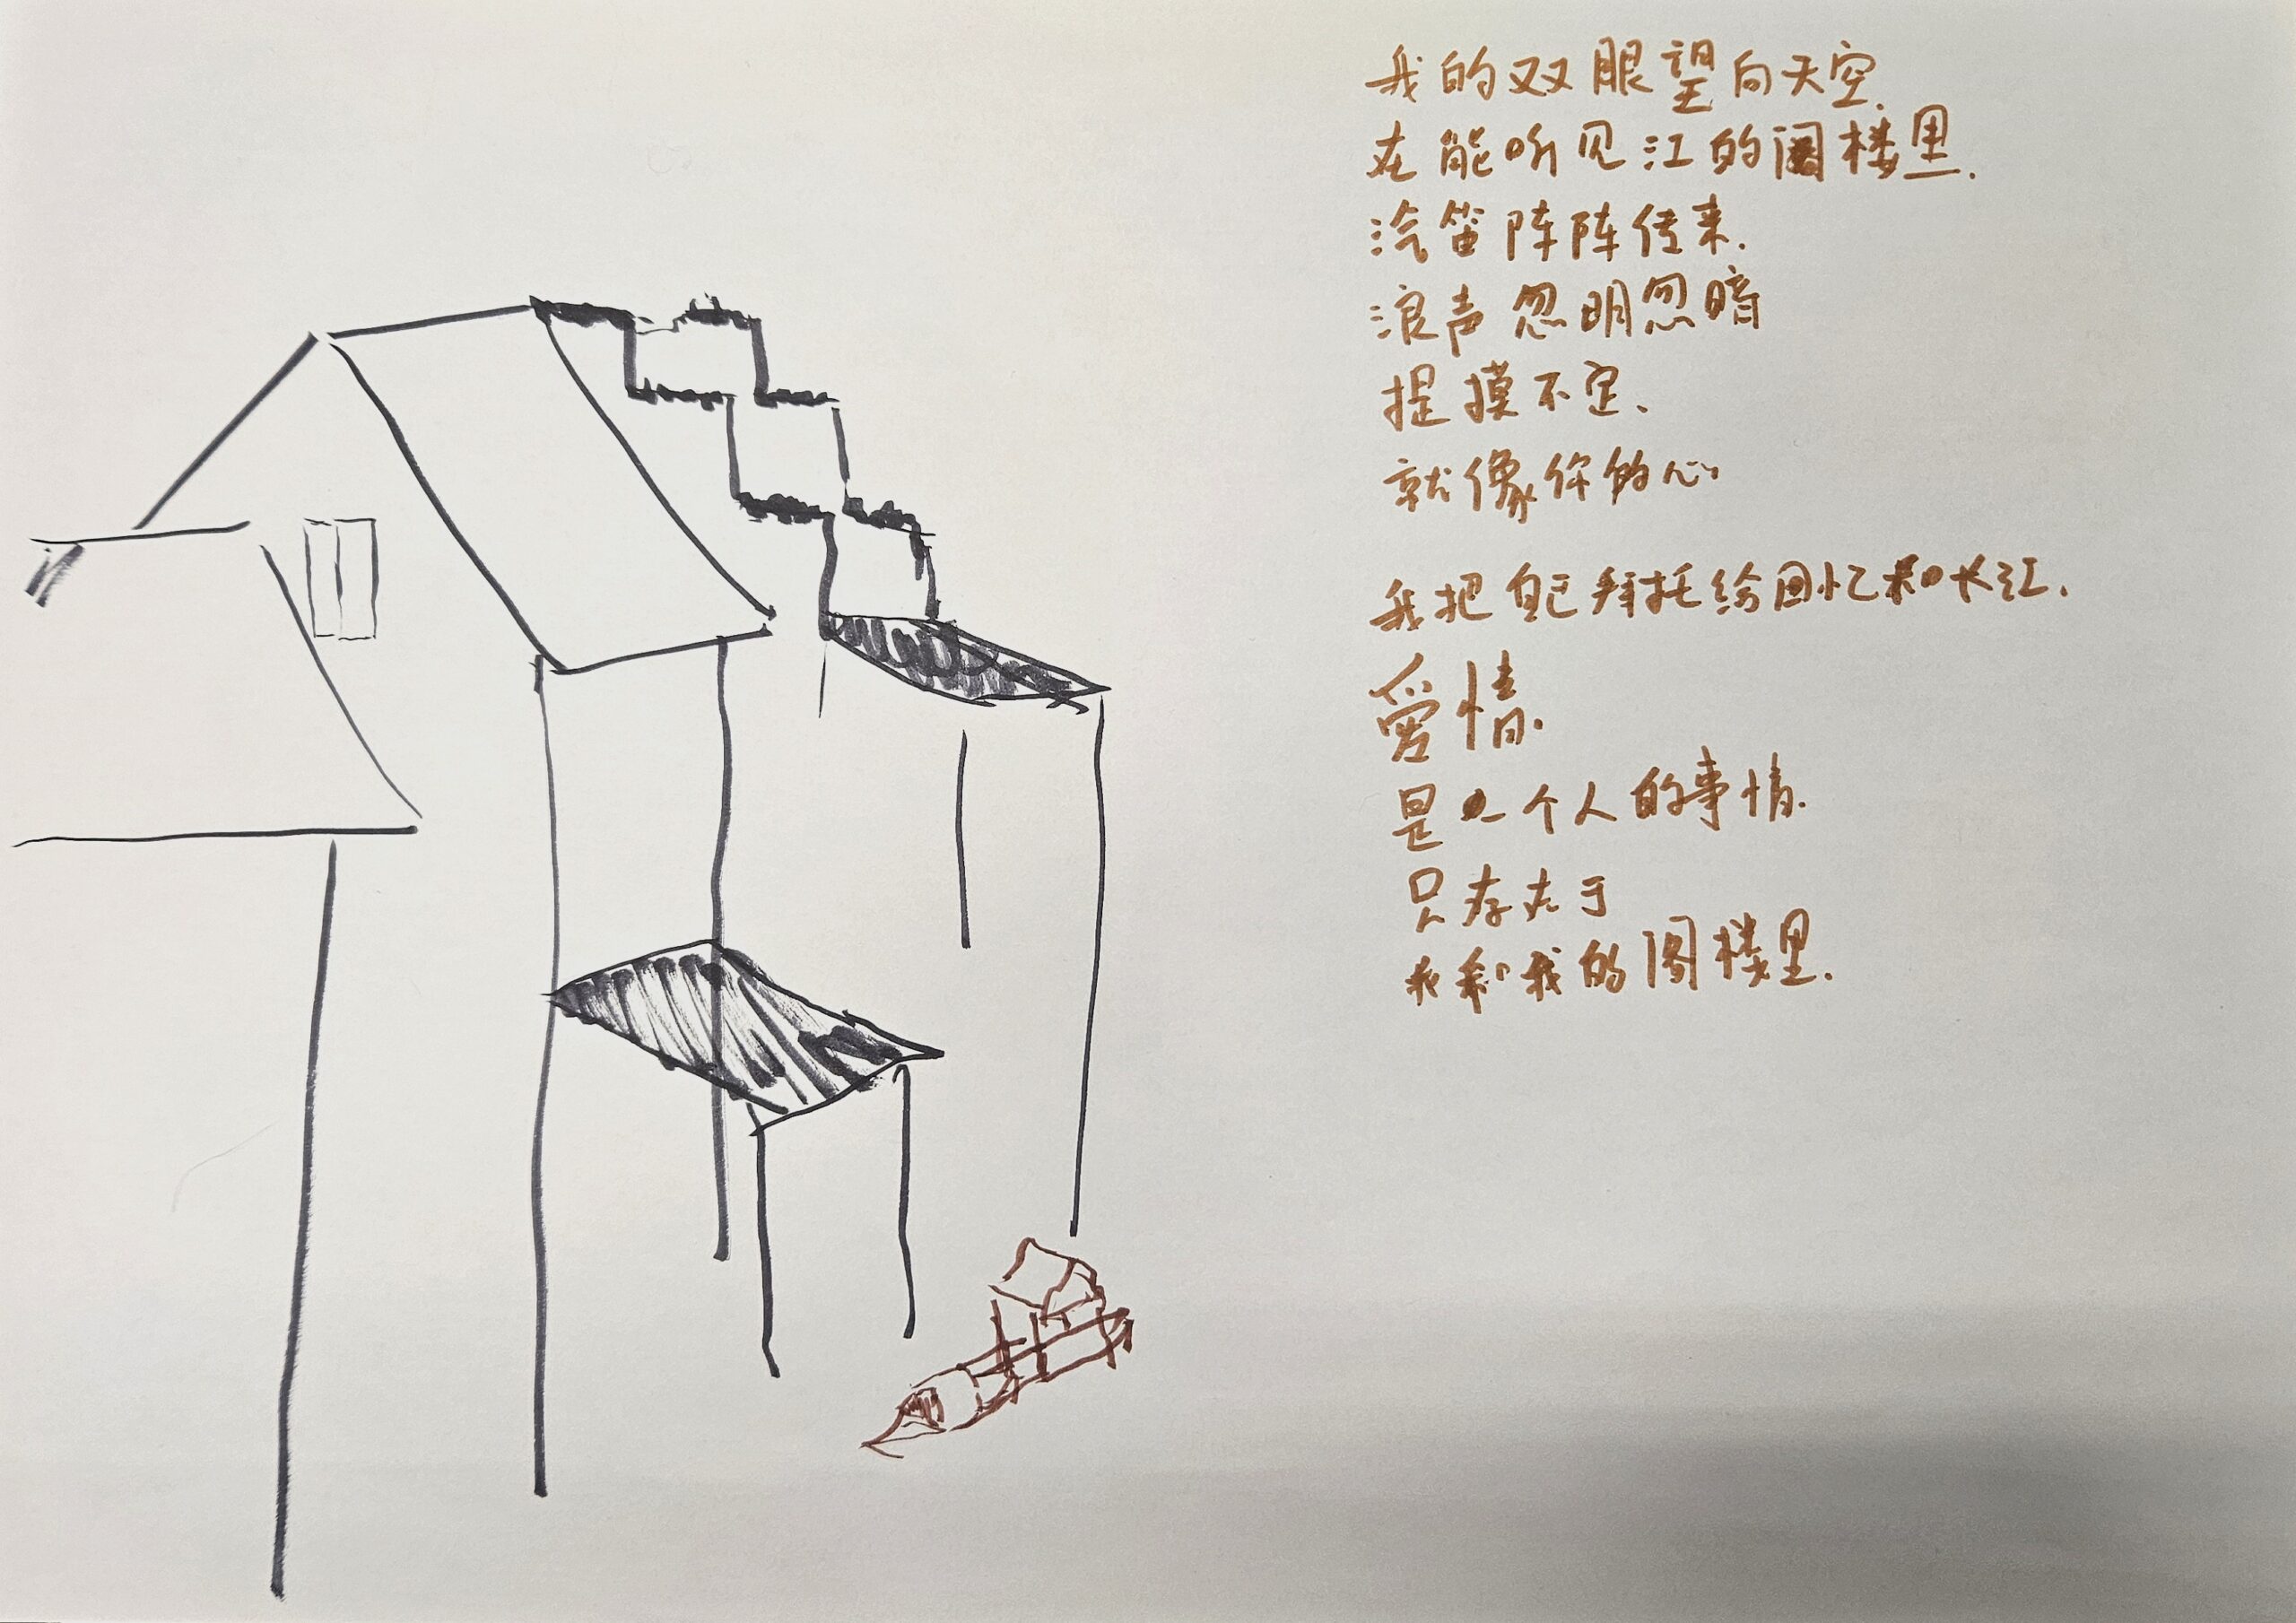 我的双眼望向天空.
在能听见江的阁楼里.
汽笛阵阵传来.
浪声忽明忽暗
提摸不定.
就像你的心
我把自己拜托给回忆和长江.
爱情.
是一个人的事情.
只存在于
我和我的阁楼里.